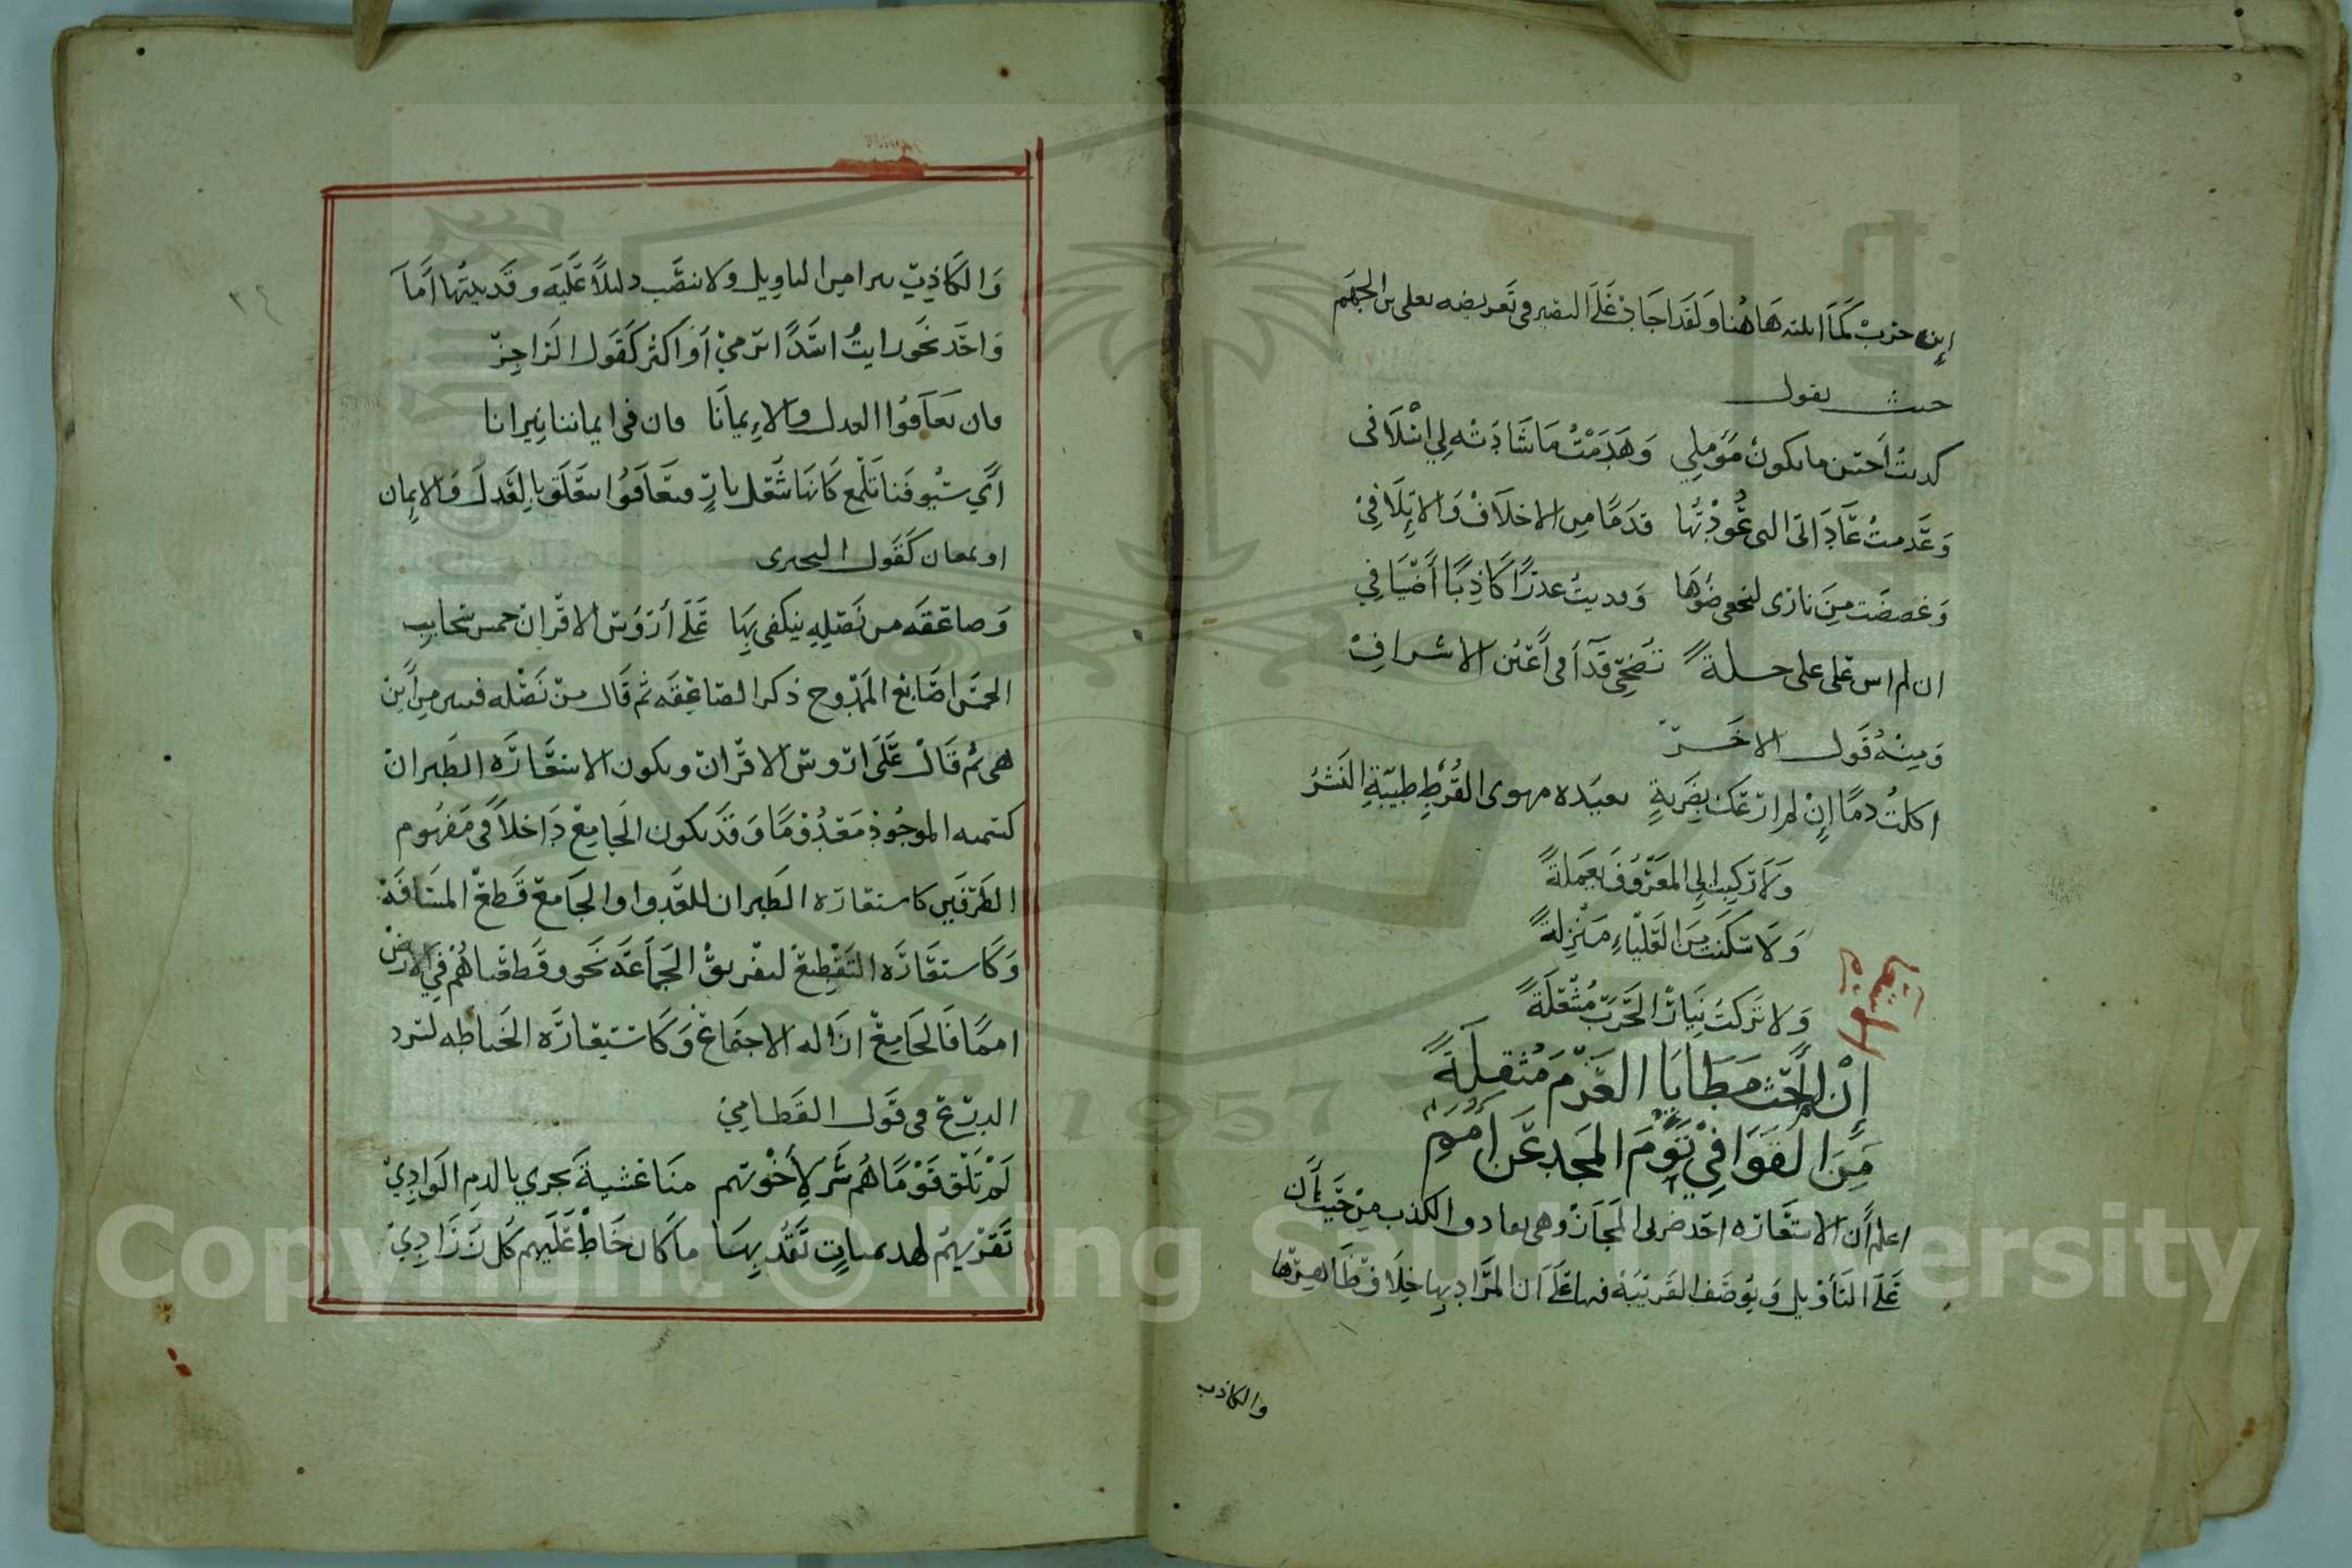 ابن حرب كما ابلته هاهنا ولقد اجاد علي البصير في تعريضه بعلي بن الجهم
حيث يقول
كذبت احسن ما يكون مؤملي وهدمت ما شادته لي اسلافي
وعدمت عاداتي التي عودتها قدما من الاخلاف والاتلاف
وغضضت من ناري ليخفى ضوءها وقريت عذرا كاذبا أضيافي
ان لم اشن على علي حلة تضحي قذا في أعين الاشراف
ومنه قول الاخر
اكلت دما إن لم ارعك بضرة بعيدة مهوى القرط طيبة النشر
ولا تركب الي المعروف بعملة
ولا سكنت من العلياء منزلة
ولا تركت نيار الحرب مثقلة
إن لم احث مطايا العزم مثقلة
من القوافي تؤم المجد عن امم
الاستعارة
اعلم أن الاستعارة احد ضربي المجاز وهي تفارق الكذب من حيث أن
على التأويل وتوضف القرينة فيها على ان المراد بها خلاف ظاهرها
والكاذب
٢٤
والكاذب يتبرا من التاويل ولا ينصب دليلا عليه وقرينتها اما
واحد نحو رايت اسدا يرمي أو اكثر كقول الراجز
فان تعافوا العدل والايمانا فان في ايماننا نيرانا
أي سيوفنا تلمع كانها شعل نار فتعافوا يتعلق بالعدل والايمان
او بمعان كقول البحتري
وصاعقة من نصله ينكفي بها على أرؤس الاقران خمس سحايب
الخمس اصابع الممدوح ذكر الصاعقة ثم قال من نصله فبين من أين
هي ثم قال على ارؤس الاقران ويكون الاستعارة الطيران
كتسمية الموجود معدوما وقد يكون الجامع داخلا في مفهوم
الطرفين كاستعارة الطيران للعدو او الجامع قطع المسافة
وكاستعارة التقطيع لتفريق الجماعة نحو وقطعناهم في الارض
امما فالجامع ازالة الاجتماع وكاستعارة الخياطة لسرد
الدرع في قول القطامي
لم تلق قوما هم شر لأخوتهم منا عشية يجري بالدم الوادي
نقريهم لهدميات نقد بها ما كان خاط عليهم كل زراد